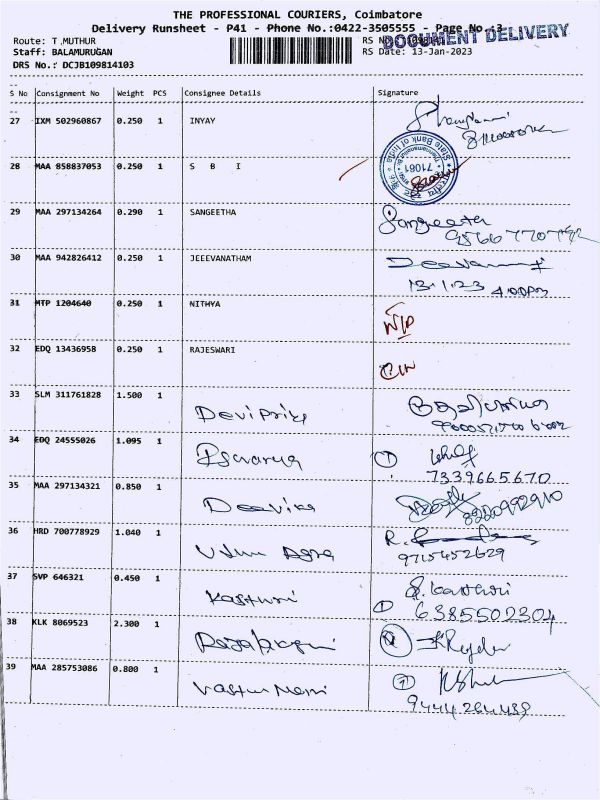 THE PROFESSIONAL COURIERS, Coimbatore
Delivery Runsheet - P41 - Phone No.:0422-3505555 - Page No.:3
DOCUMENT DELIVERY
Route: T.MUTHUR
Staff: BALAMURUGAN
RS Date: 13-Jan-2023
DRS No.: DCJB109814103
S No Consignment No Weight PCS Consignee Details Signature
27 IXM 502960867 0.250 1 INYAY
28 MAA 858837053 0.250 1 S B I
State Bank of India
71061
29 MAA 297134264 0.290 1 SANGEETHA Sangeetha
30 MAA 942826412 0.250 1 JEEEVANATHAM
13.1.23 4.00pm
31 MTP 1204640 0.250 1 NITHYA
32 EDQ 13436958 0.250 1 RAJESWARI
33 SLM 311761828 1.500 1 Devi Priya
34 EDQ 24555026 1.095 1
7339665670
35 MAA 297134321 0.850 1 Deevika
8220992910
36 HRD 700778929 1.040 1
9715452629
37 SVP 646321 0.450 1 Kasthuri S. Kasthuri
6385502304
38 KLK 8069523 2.300 1
39 MAA 285753086 0.800 1
9444264489